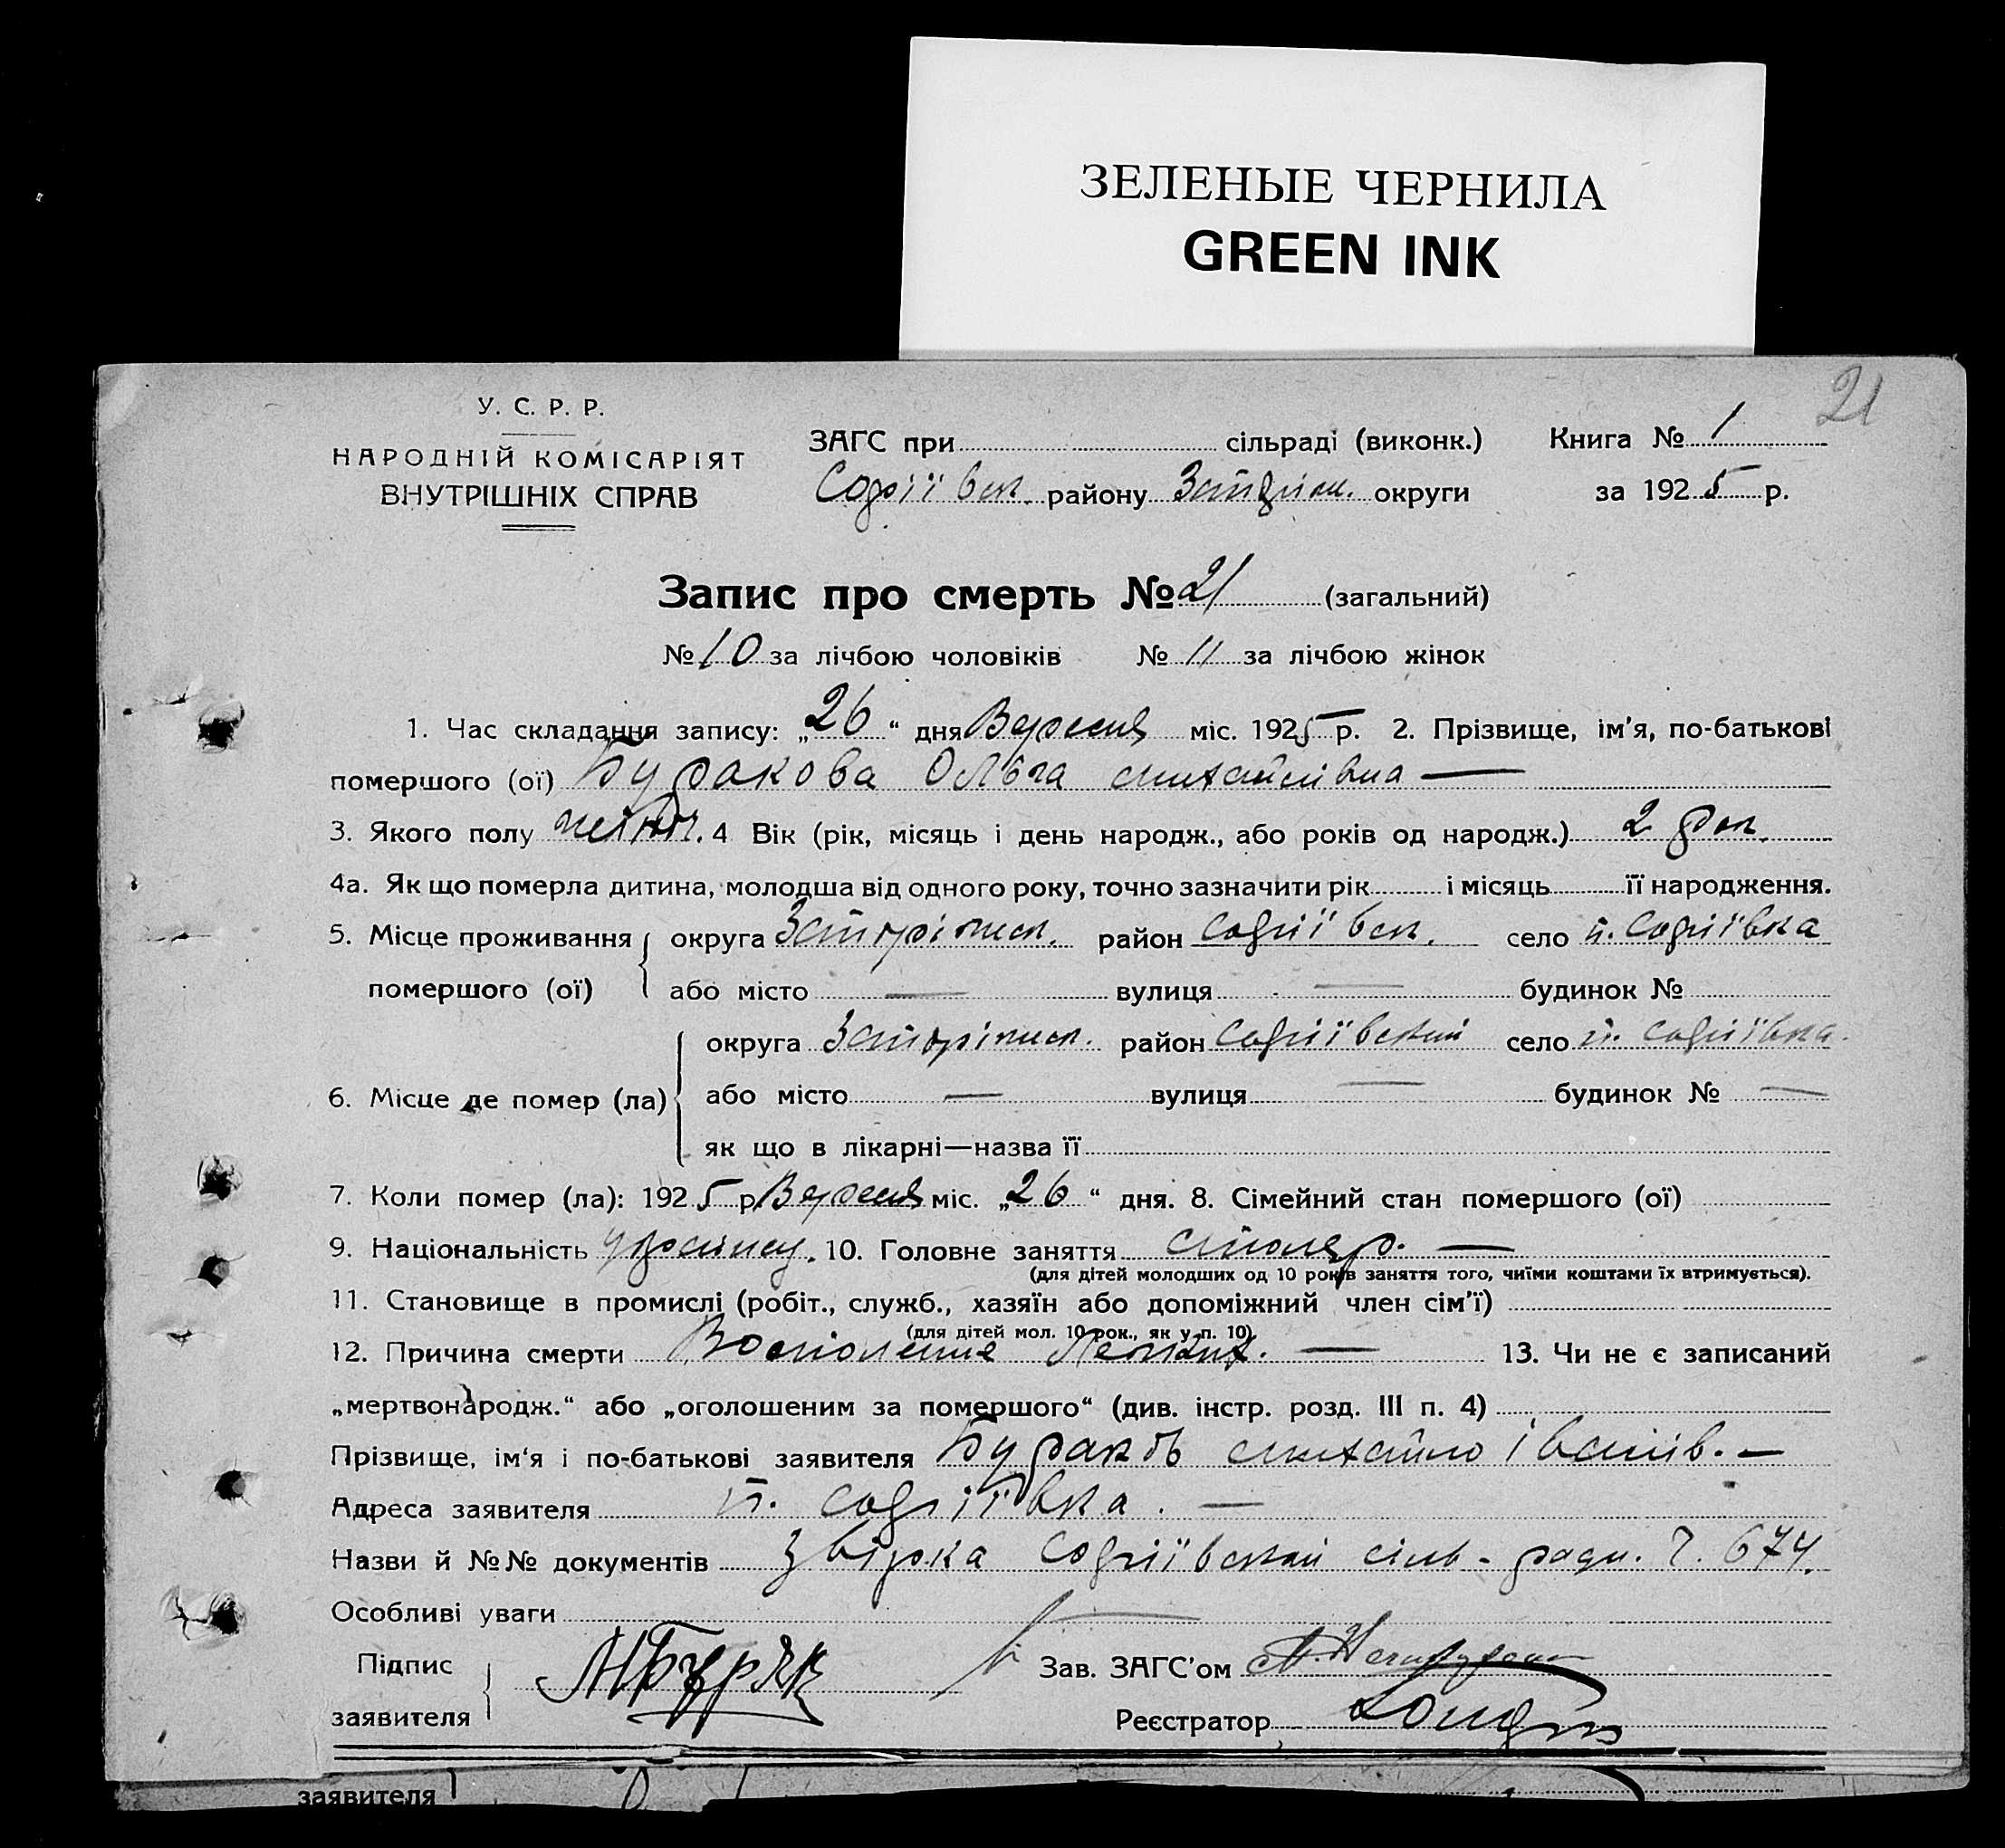 ЗЕЛЕНЫЕ ЧЕРНИЛА
GREEN INK
21
У. С. Р. Р.
НАРОДНІЙ КОМІСАРІЯТ
ВНУТРІШНІХ СПРАВ
ЗАГС при сільраді (виконк.) Книга № 1
Софіївськ. району округи за 1925 р.
Запис про смерть № 21 (загальний)
№ 10 за лічбою чоловіків № 11 за лічбою жінок
1. Час складання запису: „26“ дня Вересня міс. 1925 р. 2. Прізвище, ім'я, по-батькові
помершого (ої) Буракова Ольга Михайлівна —
3. Якого полу 4 Вік (рік, місяць і день народж., або років од народж.) 2 рок.
4а. Як що померла дитина, молодша від одного року, точно зазначити рік і місяць її народження.
5. Місце проживання округа Запоріжск. район Софіївськ. село п. Софіївка
помершого (ої) або місто — вулиця — будинок №
округа Запоріжск. район Софіївський село п. Софіївка.
6. Місце де помер (ла) або місто — вулиця — будинок № —
як що в лікарні—назва її
7. Коли помер (ла): 1925 р. Вересня міс. „26“ дня. 8. Сімейний стан помершого (ої)
9. Національність 10. Головне заняття столяр. —
(для дітей молодших од 10 років заняття того, чиїми коштами їх втримується).
11. Становище в промислі (робіт., служб., хазяїн або допоміжний член сім'ї)
(для дітей мол. 10 рок., як у п. 10)
12. Причина смерти Воспоління Легких. — 13. Чи не є записаний
„мертвонародж.“ або „оголошеним за помершого“ (див. інстр. розд. III п. 4)
Прізвище, ім'я і по-батькові заявителя Бураков Михайло Іванів. —
Адреса заявителя п. Софіївка. —
Назви й №№ документів Софіївської сіль-ради. Ч. 674.
Особливі уваги —
Підпис МБуряк Зав. ЗАГС'ом
заявителя Реєстратор
заявителя